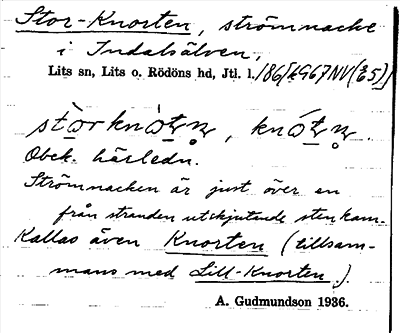 Stor-Knorten, strömnacke
i Indalsälven,
Lits sn, Lits o. Rödöns hd, Jtl. l.
Obek. härledn.
Strömnacken är just över en
från stranden utskjutande stenkam.
Kallas även Knorten (tillsam-
mans med Lill-Knorten).
A. Gudmundson 1936.